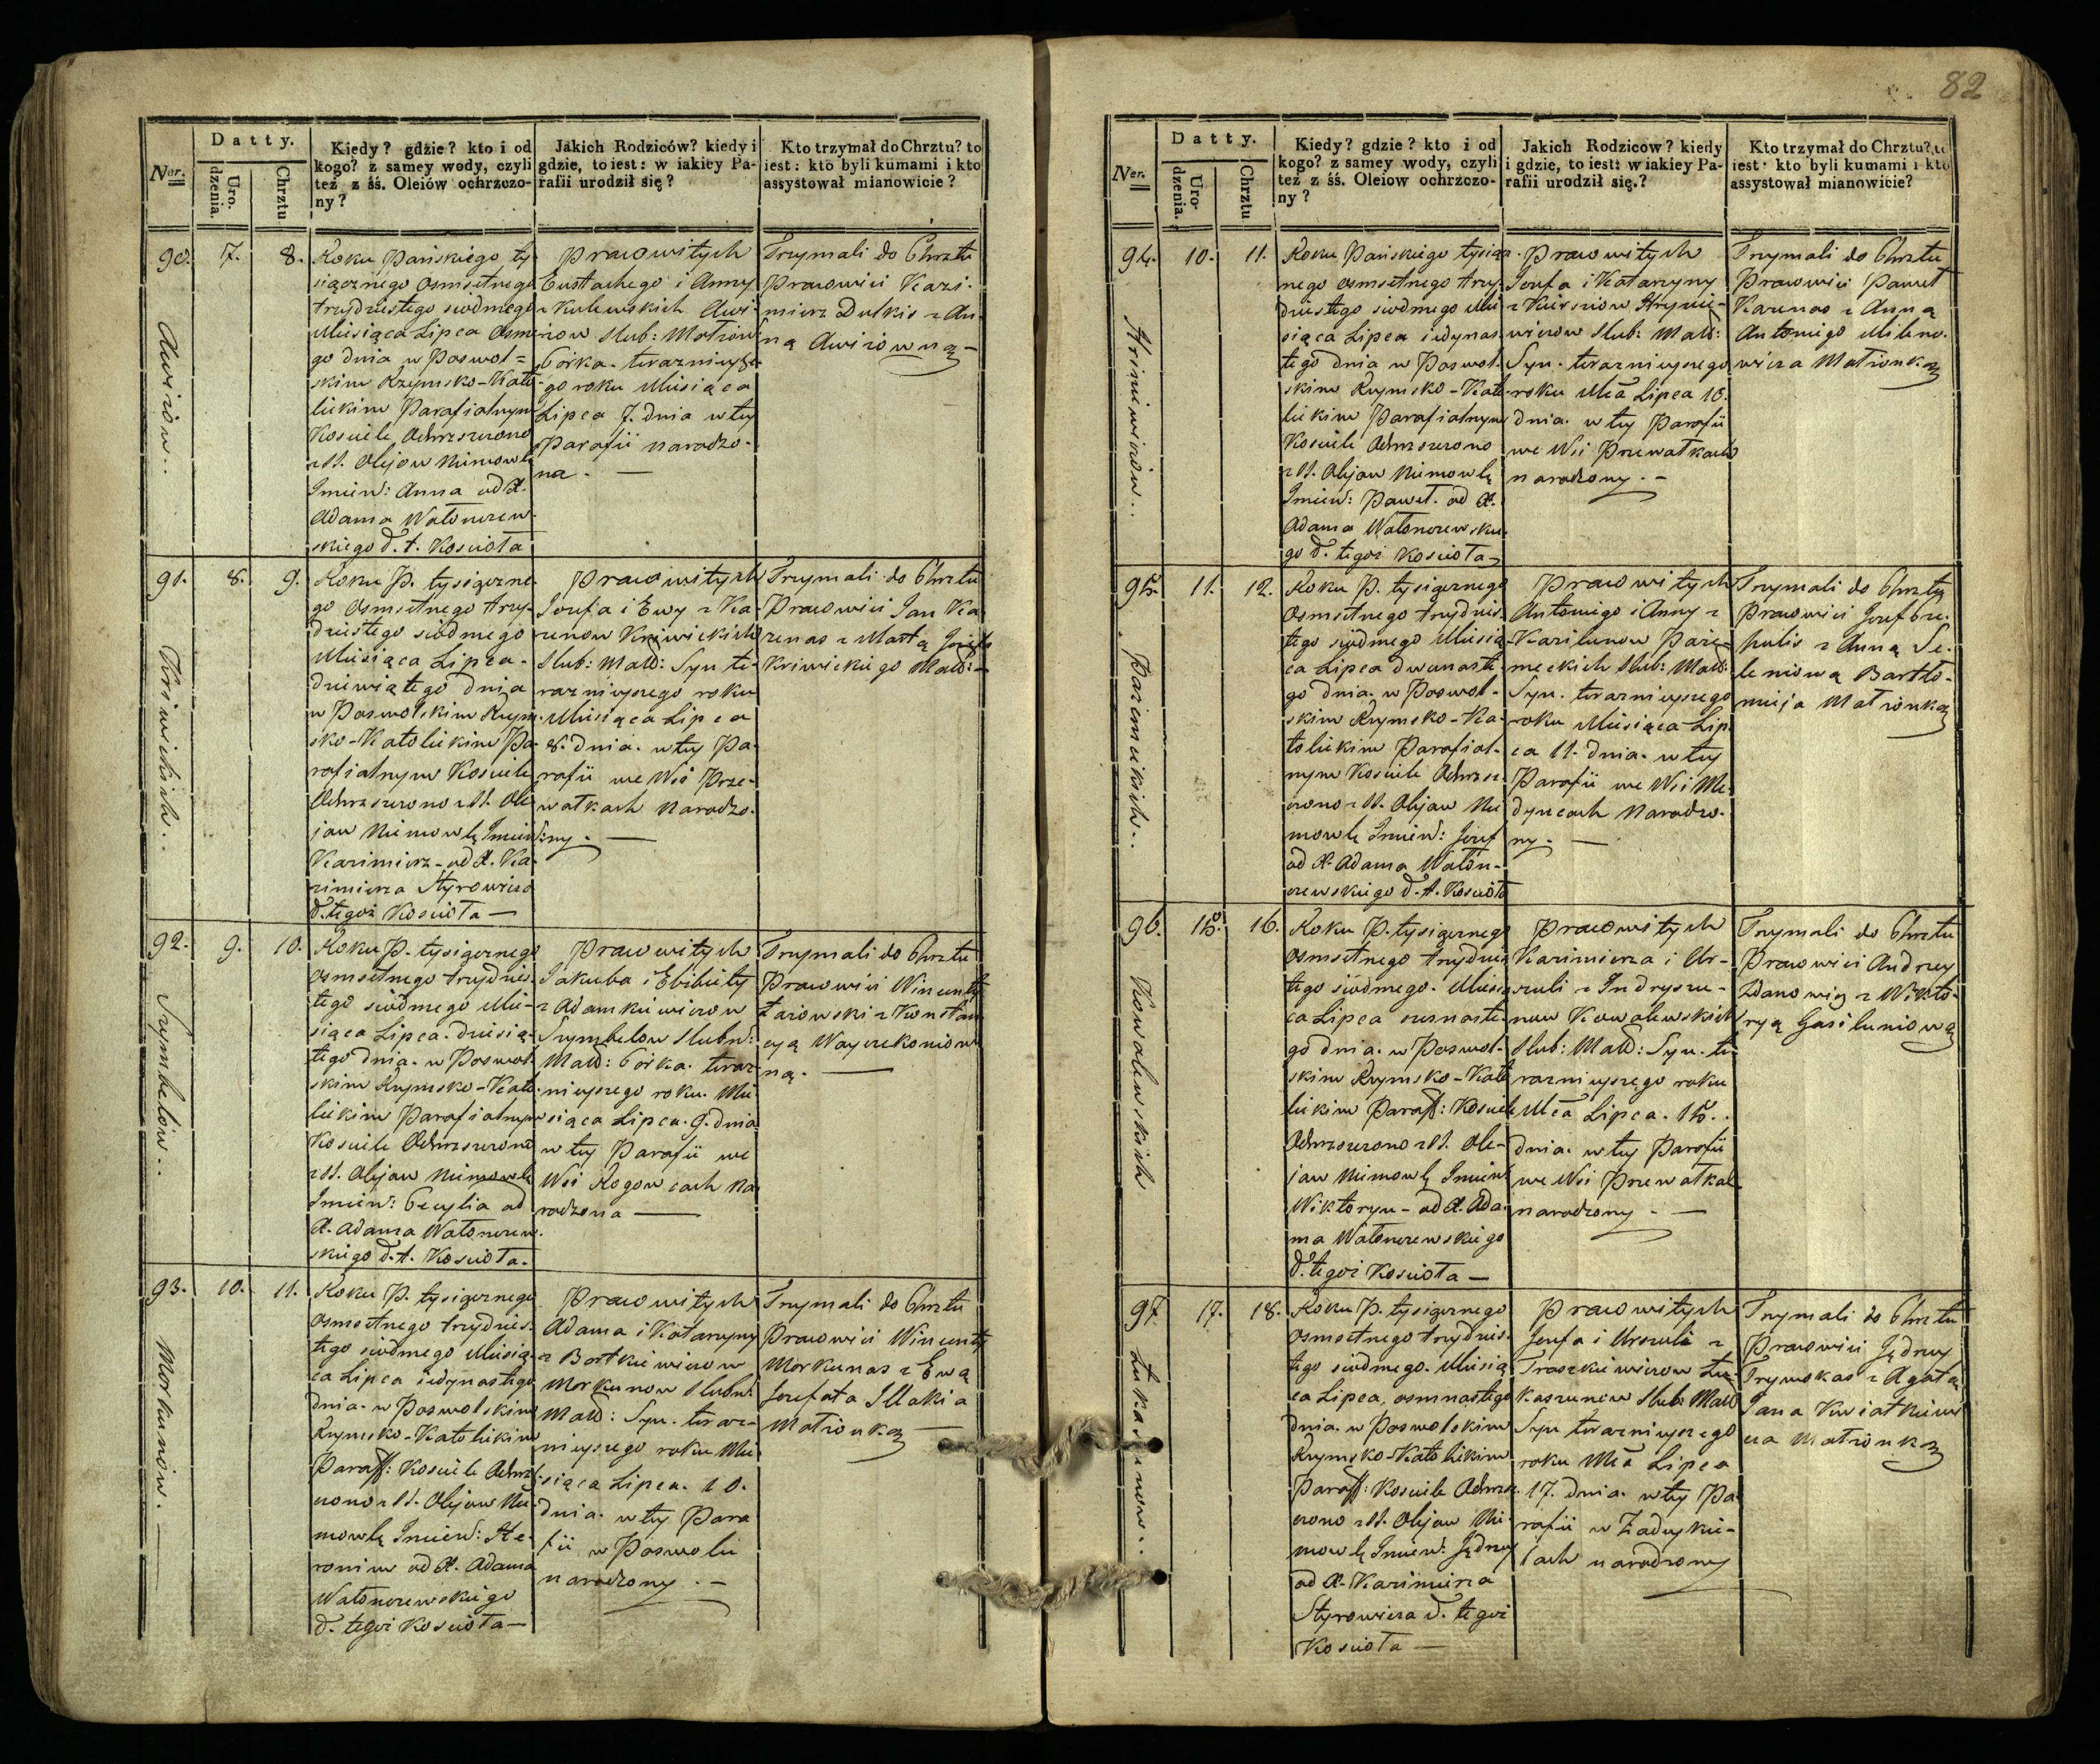 82
Datty.
Ner.
Urodzenia.
Chrztu
Kiedy? gdzie? kto i od
kogo? z samey wody, czyli
też z śś. Oleiów ochrzczo-
ny?
Jakich Rodziców? kiedy i
gdzie, to iest: w iakiey Pa-
rafii urodził się?
Kto trzymał do Chrztu? to
iest: kto byli kumami i kto
assystował mianowicie?
90. 7. 8.
Awiżow..
Roku Pańskiego ty-
siącznego osmsetnego
trzydziestego siódmego
Miesiąca Lipca Osme-
go dnia w Poswol=
skim Rzymsko-Kato-
lickim Parafialnym
Kosciele Ochrzszczono
z SS. Olejow Niemowle
Imien: Anna od X.
Adama Watonczew-
skiego d. t. Kosciota
Prawowitych
Eustachego i Anny
z Kulewskich Awi-
żow Slub: Małżów
Córka. terazniejsze-
go roku Miesiąca
Lipca 7. dnia w tey
Parafii narodzo-
na. —
Trzymali do Chrztu
Prawowici Kazi-
mierz Dulkis z An-
ną Awiżowną —
91. 8. 9.
Kriwickich..
Roku P. tysiączne-
go Osmsetnego trzy-
dziestego siódmego
Miesiąca Lipca-
dziewiątego dnia
w Poswolskim Rzym-
sko-Katolickim Pa-
rafialnym Kosciele
Ochrzszczono z SS. Ole-
jow Niemowlę Imien:
Kazimierz-od X. Ka-
zimierza Styrowicza
d. tegoż Kosciota —
Prawowitych
Jozefa i Ewy z Ka-
renow Kriwickich
Slub: Małż: Syn te-
razniejszego roku
Miesiąca Lipca
8. dnia. w tey Pa-
rafii we Wsi Prze-
watkach Narodzo-
ny. —
Trzymali do Chrztu
Prawowici Jan Ka-
renas z Martą Jozefa
Kriwickiego Małż: —
92. 9. 10.
Szymbelow..
Roku P. tysiącznego
osmsetnego trzydzies-
tego siódmego Mie-
siąca Lipca. dziesią-
tego dnia. w Poswol-
skim Rzymsko-Kato-
lickim Parafialnym
Kosciele Ochrzszczono
z SS. Olejow Niemowle
Imien: Cecylia od
X. Adama Watonczew-
skiego d. t. Kosciota.
Prawowitych
Jakuba i Elżbiety
z Adamkiewiczow
Szymbelow Slubn:
Małż: Córka. teraz-
niejszego roku. Mie-
siąca Lipca. 9. dnia
w tey Parafii we
Wsi Rogowcach Na-
rodzona —
Trzymali do Chrztu
Prawowici Wincenty
Zarowski z Konstan-
cyą Wayczekoniow-
ną. —
93. 10. 11.
Morkunow. —
Roku P. tysiącznego
Osmsetnego trzydzies-
tego siódmego Miesią-
ca Lipca jedynastego
dnia. w Poswolskim
Rzymsko-Katolickim
Paraff: Kosciele Ochrzsz-
czono z SS. Olejow Nie-
mowlę Imien: He-
ronim od X. Adama
Watonczewskiego
d. tegoż Kosciota —
Prawowitych
Adama i Katarzyny
z Bortkiewiczow
Morkunow Slubn:
Małż: Syn. teraz-
niejszego roku Mie-
siąca Lipca. 10.
dnia. w tey Para-
fii w Poswolu
narodzony. —
Trzymali do Chrztu
Prawowici Wincenty
Morkunas z Ewą
Jozefata Illakia
Małżonką —
Datty.
Ner.
Urodzenia.
Chrztu
Kiedy? gdzie? kto i od
kogo? z samey wody, czyli
też z śś. Oleiow ochrzczo-
ny?
Jakich Rodziców? kiedy
i gdzie, to iest: w iakiey Pa-
rafii urodził się.?
Kto trzymał do Chrztu? to
iest: kto byli kumami i kto
assystował mianowicie?
94. 10. 11.
Hriniewiczow..
Roku Pańskiego tysiącz-
nego osmsetnego trzy-
dziestego siódmego Mie-
siąca Lipca jedynas-
tego dnia w Poswol-
skim Rzymsko-Kato-
lickim Parafialnym
Kosciele Ochrzszczono
z SS. Olejow Niemowlę
Imien: Paweł. od X.
Adama Watonczewskie-
go d. tegoż Kosciota —
Prawowitych
Jozefa i Katarzyny
z Hrynie-
wiczow Slub: Małż:
Syn. terazniejszego
roku Mca Lipca 10.
dnia. w tey Parafii
we Wsi Przewatkach
narodzony. —
Trzymali do Chrztu
Prawowici Paweł
Karenas z Anną
Antoniego Milno-
wicza Małżonką
95. 11. 12.
Pazemeckich..
Roku P. tysiącznego
Osmsetnego trzydzies-
tego siódmego Miesią-
ca Lipca dwunaste-
go dnia. w Poswol-
skim Rzymsko-Ka-
tolickim Parafial-
nym Kosciele Ochrzsz-
czono z SS. Olejow Nie-
mowlę Imien: Jozef
od X. Adama Waton-
czewskiego d. t. Kosciota
Prawowitych
Antoniego i Anny z
Karilunow Paze-
meckich Slub: Małż:
Syn. terazniejszego
roku Miesiąca Lip-
ca 11. dnia. w tey
Parafii we Wsi Me-
dyncach Narodzo-
ny. —
Trzymali do Chrztu
Prawowici Jozef
z Anną Se-
leniową Bartło-
mieja Małżonką
96. 15. 16.
Kowalewskich
Roku P. tysiącznego
Osmsetnego trzydzies-
tego siódmego. Miesią-
ca Lipca szesnaste-
go dnia. w Poswol-
skim Rzymsko-Kato-
lickim Paraff: Kosciele
Ochrzszczono z SS. Ole-
jow Niemowlę Imien:
Wiktoryn - od X. Ada-
ma Watonczewskiego
d. tegoż Kosciota —
Prawowitych
Kazimierza i Ur-
szuli z Indryszu-
now Kowalewskich
Slub: Małż: Syn. te-
razniejszego roku
Mca Lipca. 15..
dnia. w tey Parafii
we Wsi Przewatkach
narodzony. —
Trzymali do Chrztu
Prawowici Andrzey
Zdanowicz z Wikto-
ryą Gasiluniową
97. 17. 18.
Lukaszunow..
Roku P. tysiącznego
Osmsetnego trzydzies-
tego siódmego. Miesią-
ca Lipca, osmnastego
dnia. w Poswolskim
Rzymsko-Katolickim
Paraff: Kosciele Ochrzsz-
czono z SS. Olejow Nie-
mowlę Imien: Jędrzey
od X. Kazimierza
Styrowicza d. tegoż
Kosciota —
Prawowitych
Jozefa i Urszuli z
Traszkiewiczow Lu-
kaszunow Slub: Małż
Syn terazniejszego
roku Mca Lipca
17. dnia. w tey Pa-
rafii w Zadeykie-
lach narodzony
Trzymali do Chrztu
Prawowici Jędrzey
Trymokas z Agatą
Jana Kwiatkiewi-
cza Małżonką